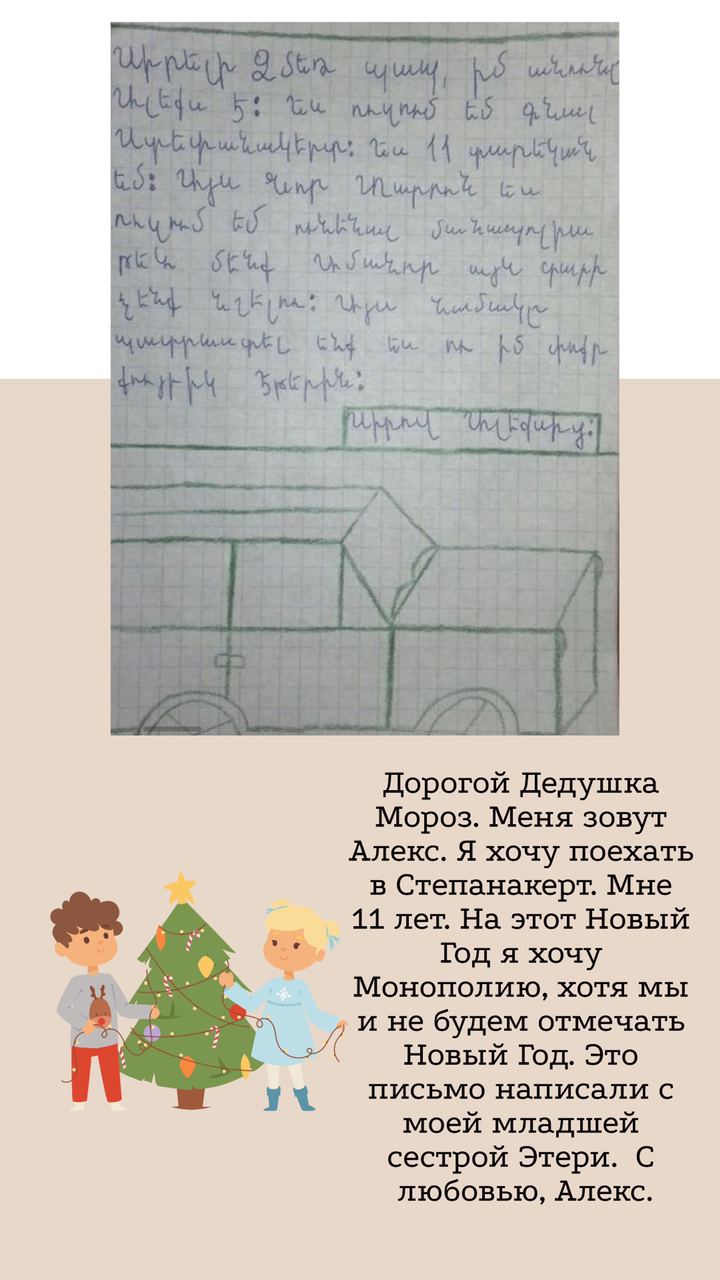 Սիրելի Ձմեռ պապ, իմ անունը
Ալեքս է: Ես ուզում եմ գնալ
Ստեփանակերտ: Ես 11 տարեկան
եմ: Այս Նոր Տարուն ես
ուզում եմ ունենալ մանապոլիա
թեև մենք Ամանոր այս տարի
չենք նշելու: Այս նամակը
պատրաստել ենք ես ու իմ փոքր
քույրիկ Էթերին:
Սիրով Ալեքսից:
Дорогой Дедушка
Мороз. Меня зовут
Алекс. Я хочу поехать
в Степанакерт. Мне
11 лет. На этот Новый
Год я хочу
Монополию, хотя мы
и не будем отмечать
Новый Год. Это
письмо написали с
моей младшей
сестрой Этери. С
любовью, Алекс.